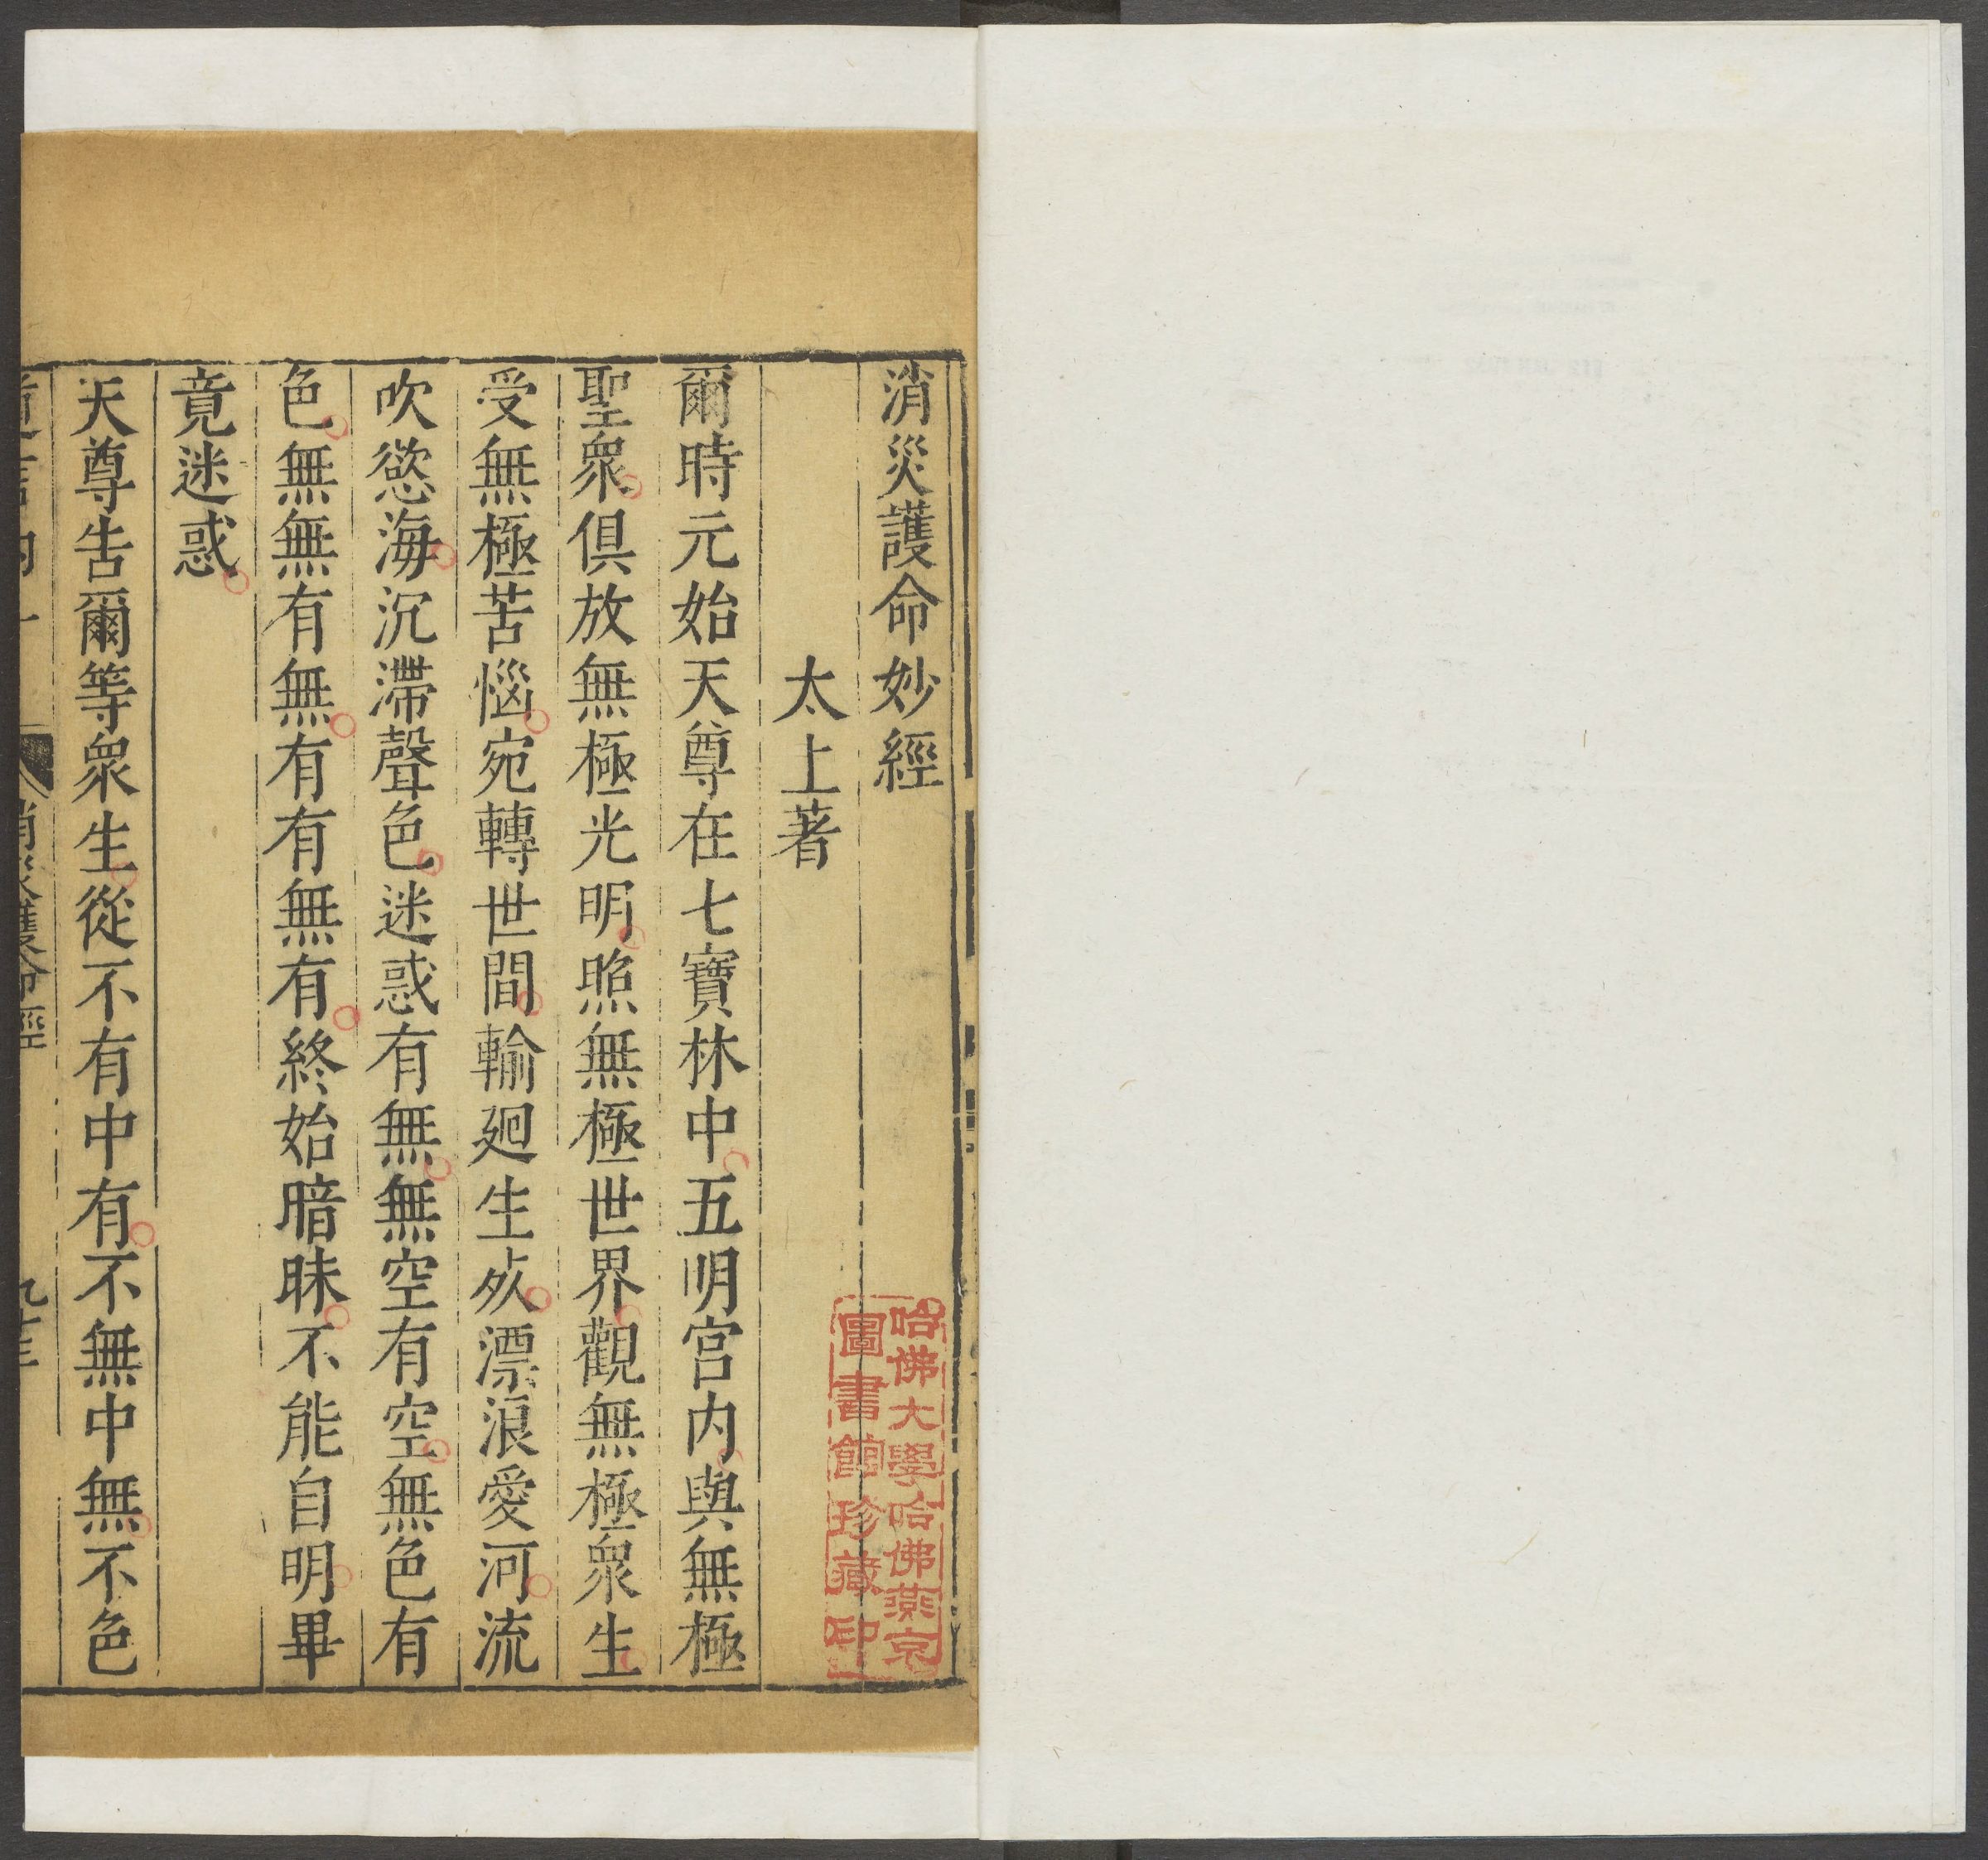 消災護命妙經
太上著
爾時元始天尊在七寶林中五明宮内與無極
聖衆俱放無極光明照無極世界觀無極衆生
受無極苦惱宛轉世間輪廻生死漂浪愛河流
吹慾海沉滯聲色迷惑有無無空有空無色有
色無無有無有有無有終始暗昧不能自明畢
竟迷惑
天尊告爾等衆生從不有中有不無中無不色
道言内
消災護命經
九十三
哈佛大學哈佛燕京
圖書館珍藏印